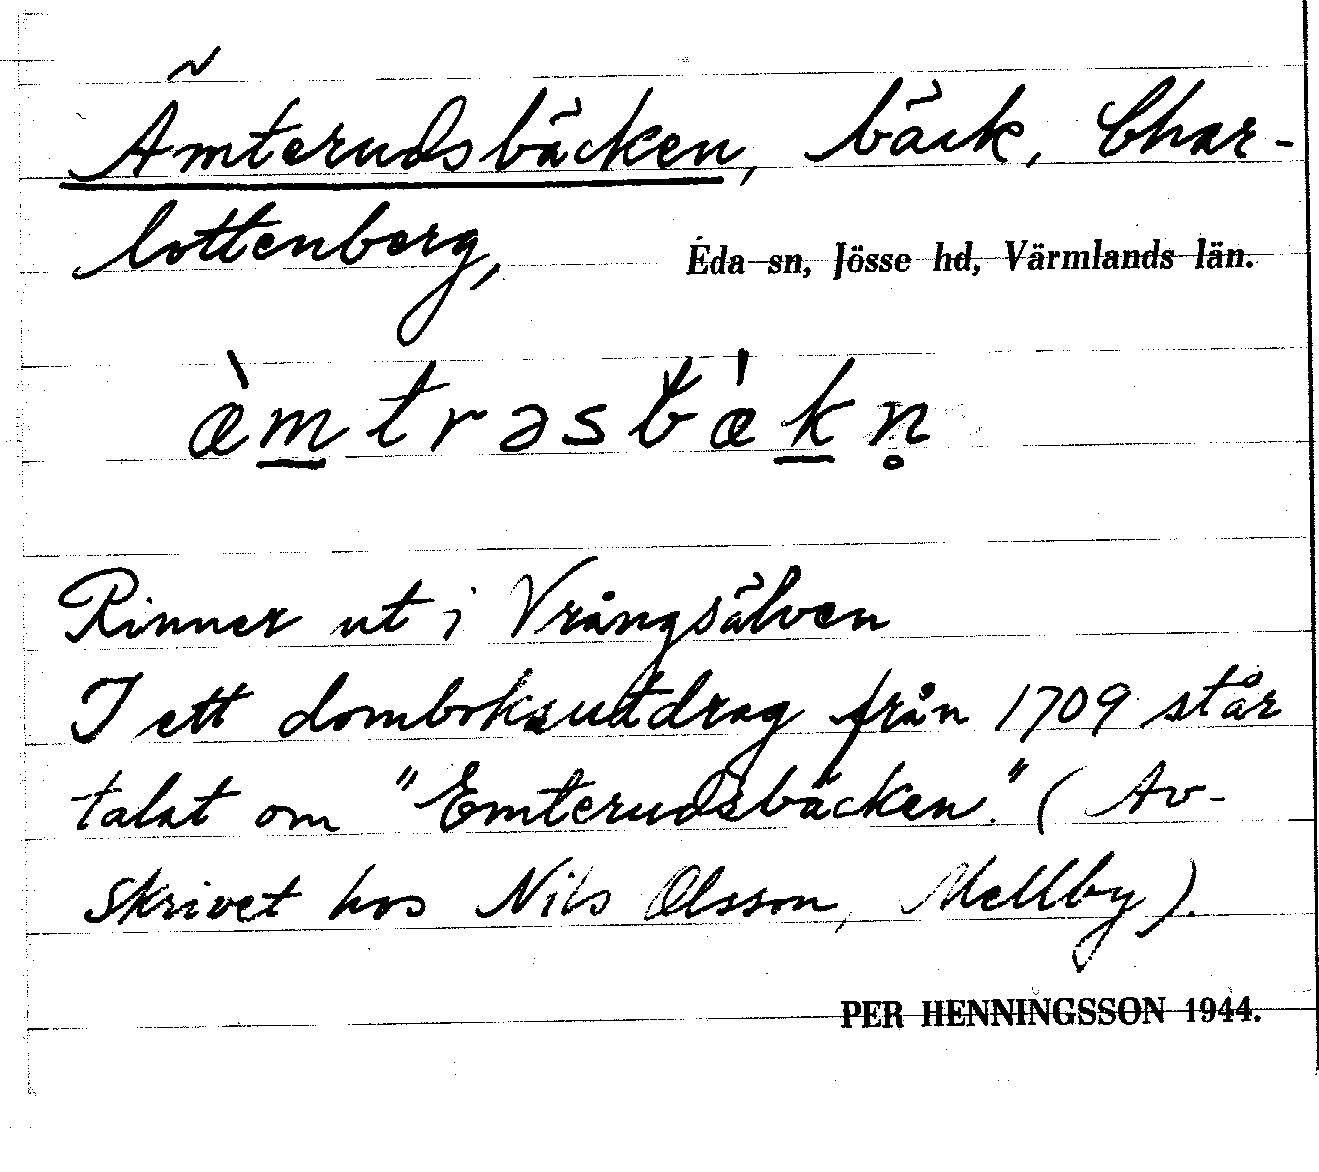 Ämterudsbäcken, bäck, Char-
lottenberg, Eda sn, Jösse hd, Värmlands län.
æ̀m̲trəsbæ̍k̲n̥
Rinner ut i Vrångsälven
I ett domboksutdrag från 1709 står
talat om "Emterudsbäcken." (Av-
skrivet hos Nils Olsson, Mellby).
PER HENNINGSSON 1944.